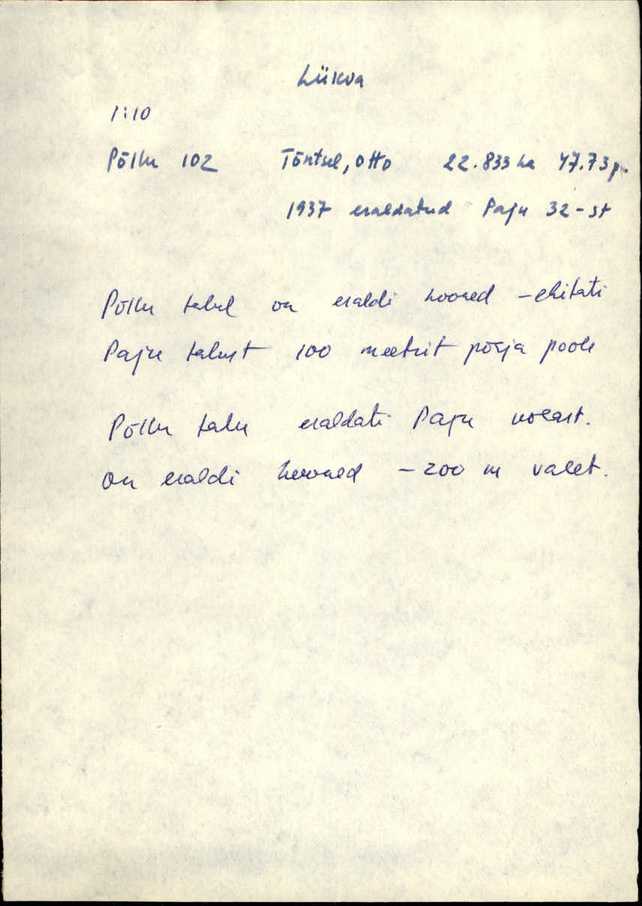 Liikva
1:10
Põllu 102 Tõntsel, Otto 22.833 ha 47.73 p.
1937 eraldatud Paju 32-st
Põllu talul on eraldi hooned – ehitati
Paju talust 100 meetrit põhja poole
Põllu talu eraldati Paju
on eraldi hooned – 200 m valet.